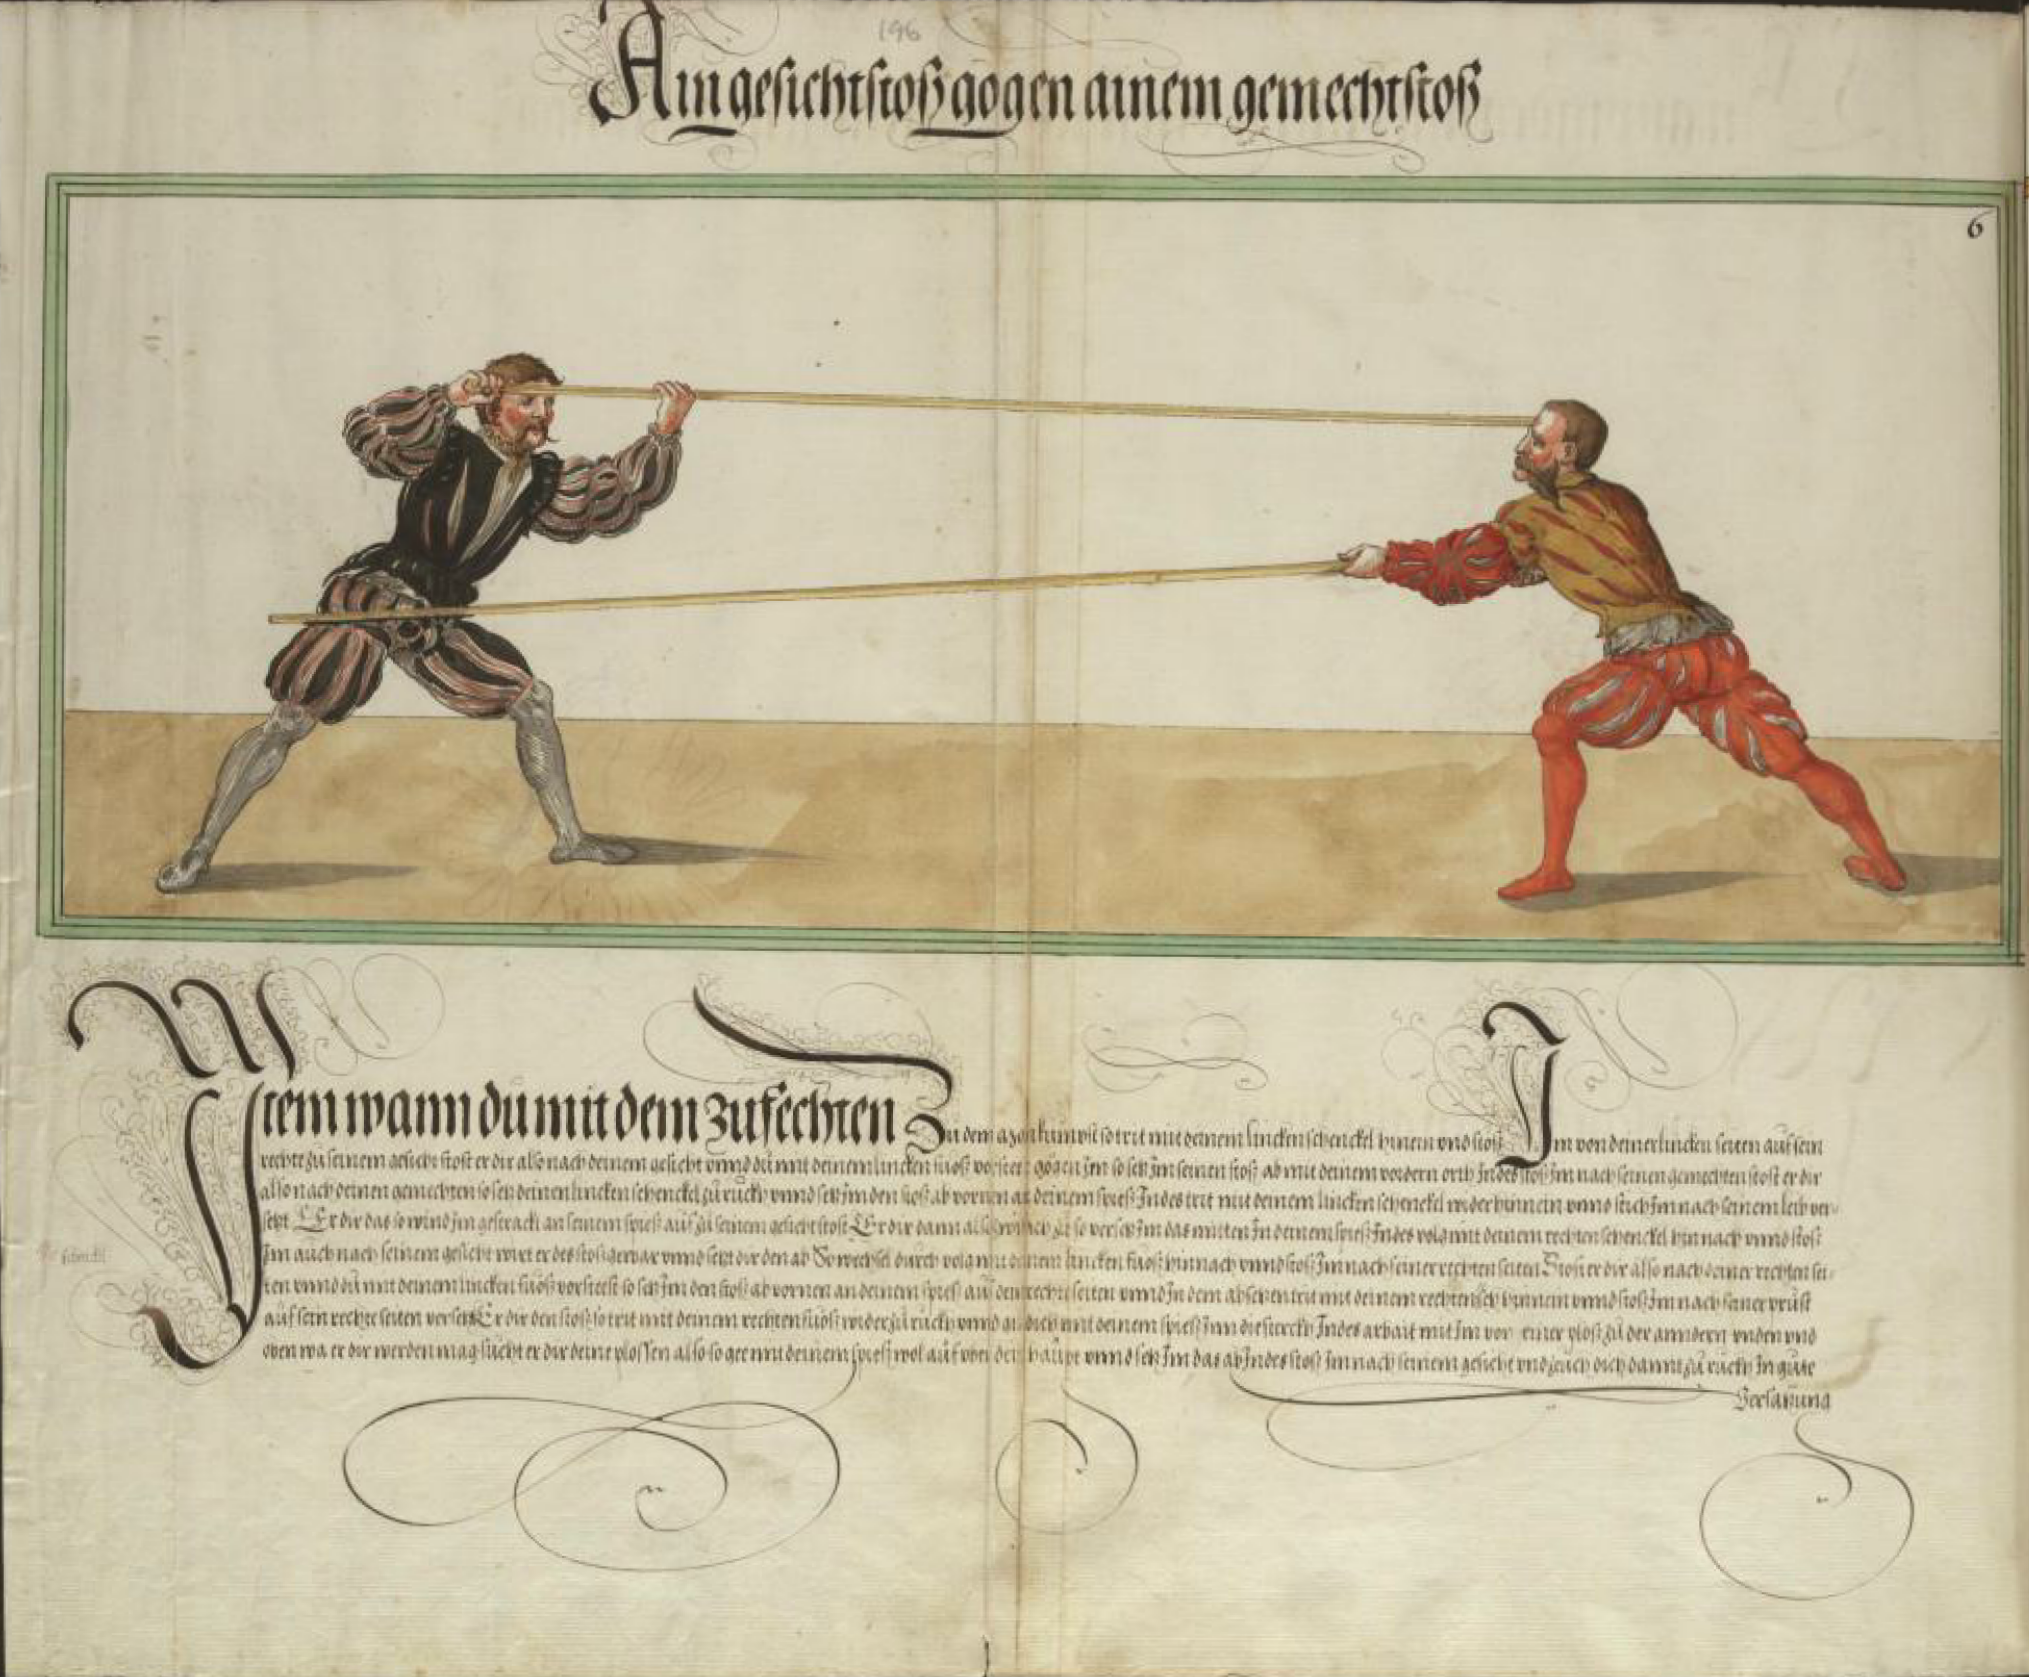 196
Ain gesichtstoß gögen ainem gemechtstoß
6
Item wann du mit dem zufechten Zu dem man kumpst so trit mit deinem lincken schenckel hinein vnnd stoß Im von deiner lincken seiten auf sein
rechte zu seinem gesicht stost er dir also nach deinem gesicht vnnd du mit deinem lincken fuoß vorsteest gögen Im so setz Im seinen stoß ab mit deinem vordern orth Indes stoß Im nach seinen gemechten stost er dir
also nach deinen gemechten so setz deinen lincken schenckel zu ruckh vnnd setz Im den stoß ab vornen an deinem spieß Indes trit mit deinem lincken schenckel wider hinnein vnnd stich Im nach seinem leib ver-
setzt Er dir das so wind Im gestrackt an seinem spieß auf zu seinem gesicht stost Er dir dann also so versetz Im das mitten In deinem spieß Indes volg mit deinem rechten schenckel hinnach vnnd stoß
Im auch nach seinem gesicht wirt er des stoß gewar vnnd setzt dir den ab So wechsel durch volg mit deinem lincken fuoß hinnach vnnd stoß Im nach seiner rechten seiten Stost er dir also nach deiner rechten sei-
ten vnnd du mit deinem lincken fuoß vorsteest so setz Im den stoß ab vornen an deinem spieß auf dein rechte seiten vnnd In dem absetzen trit mit deinem rechten sch hinnein vnnd stoß Im nach seiner prust
auf sein rechte seiten versetzt Er dir den stoß so trit mit deinem rechten fuoß wider zu ruckh vnnd dich mit deinem spieß Inn die sterckh Indes arbait mit Im von einer plöß zu der anndern vnden vnd
oben wa er dir werden mag sücht er dir deine plössen also so gee mit deinem spieß wol auf vber dein haupt vnnd setz Im das ab Indes stoß Im nach seinem gesicht vnd zeuch dich damit zu ruckh In guter
Versatzung
schenckl